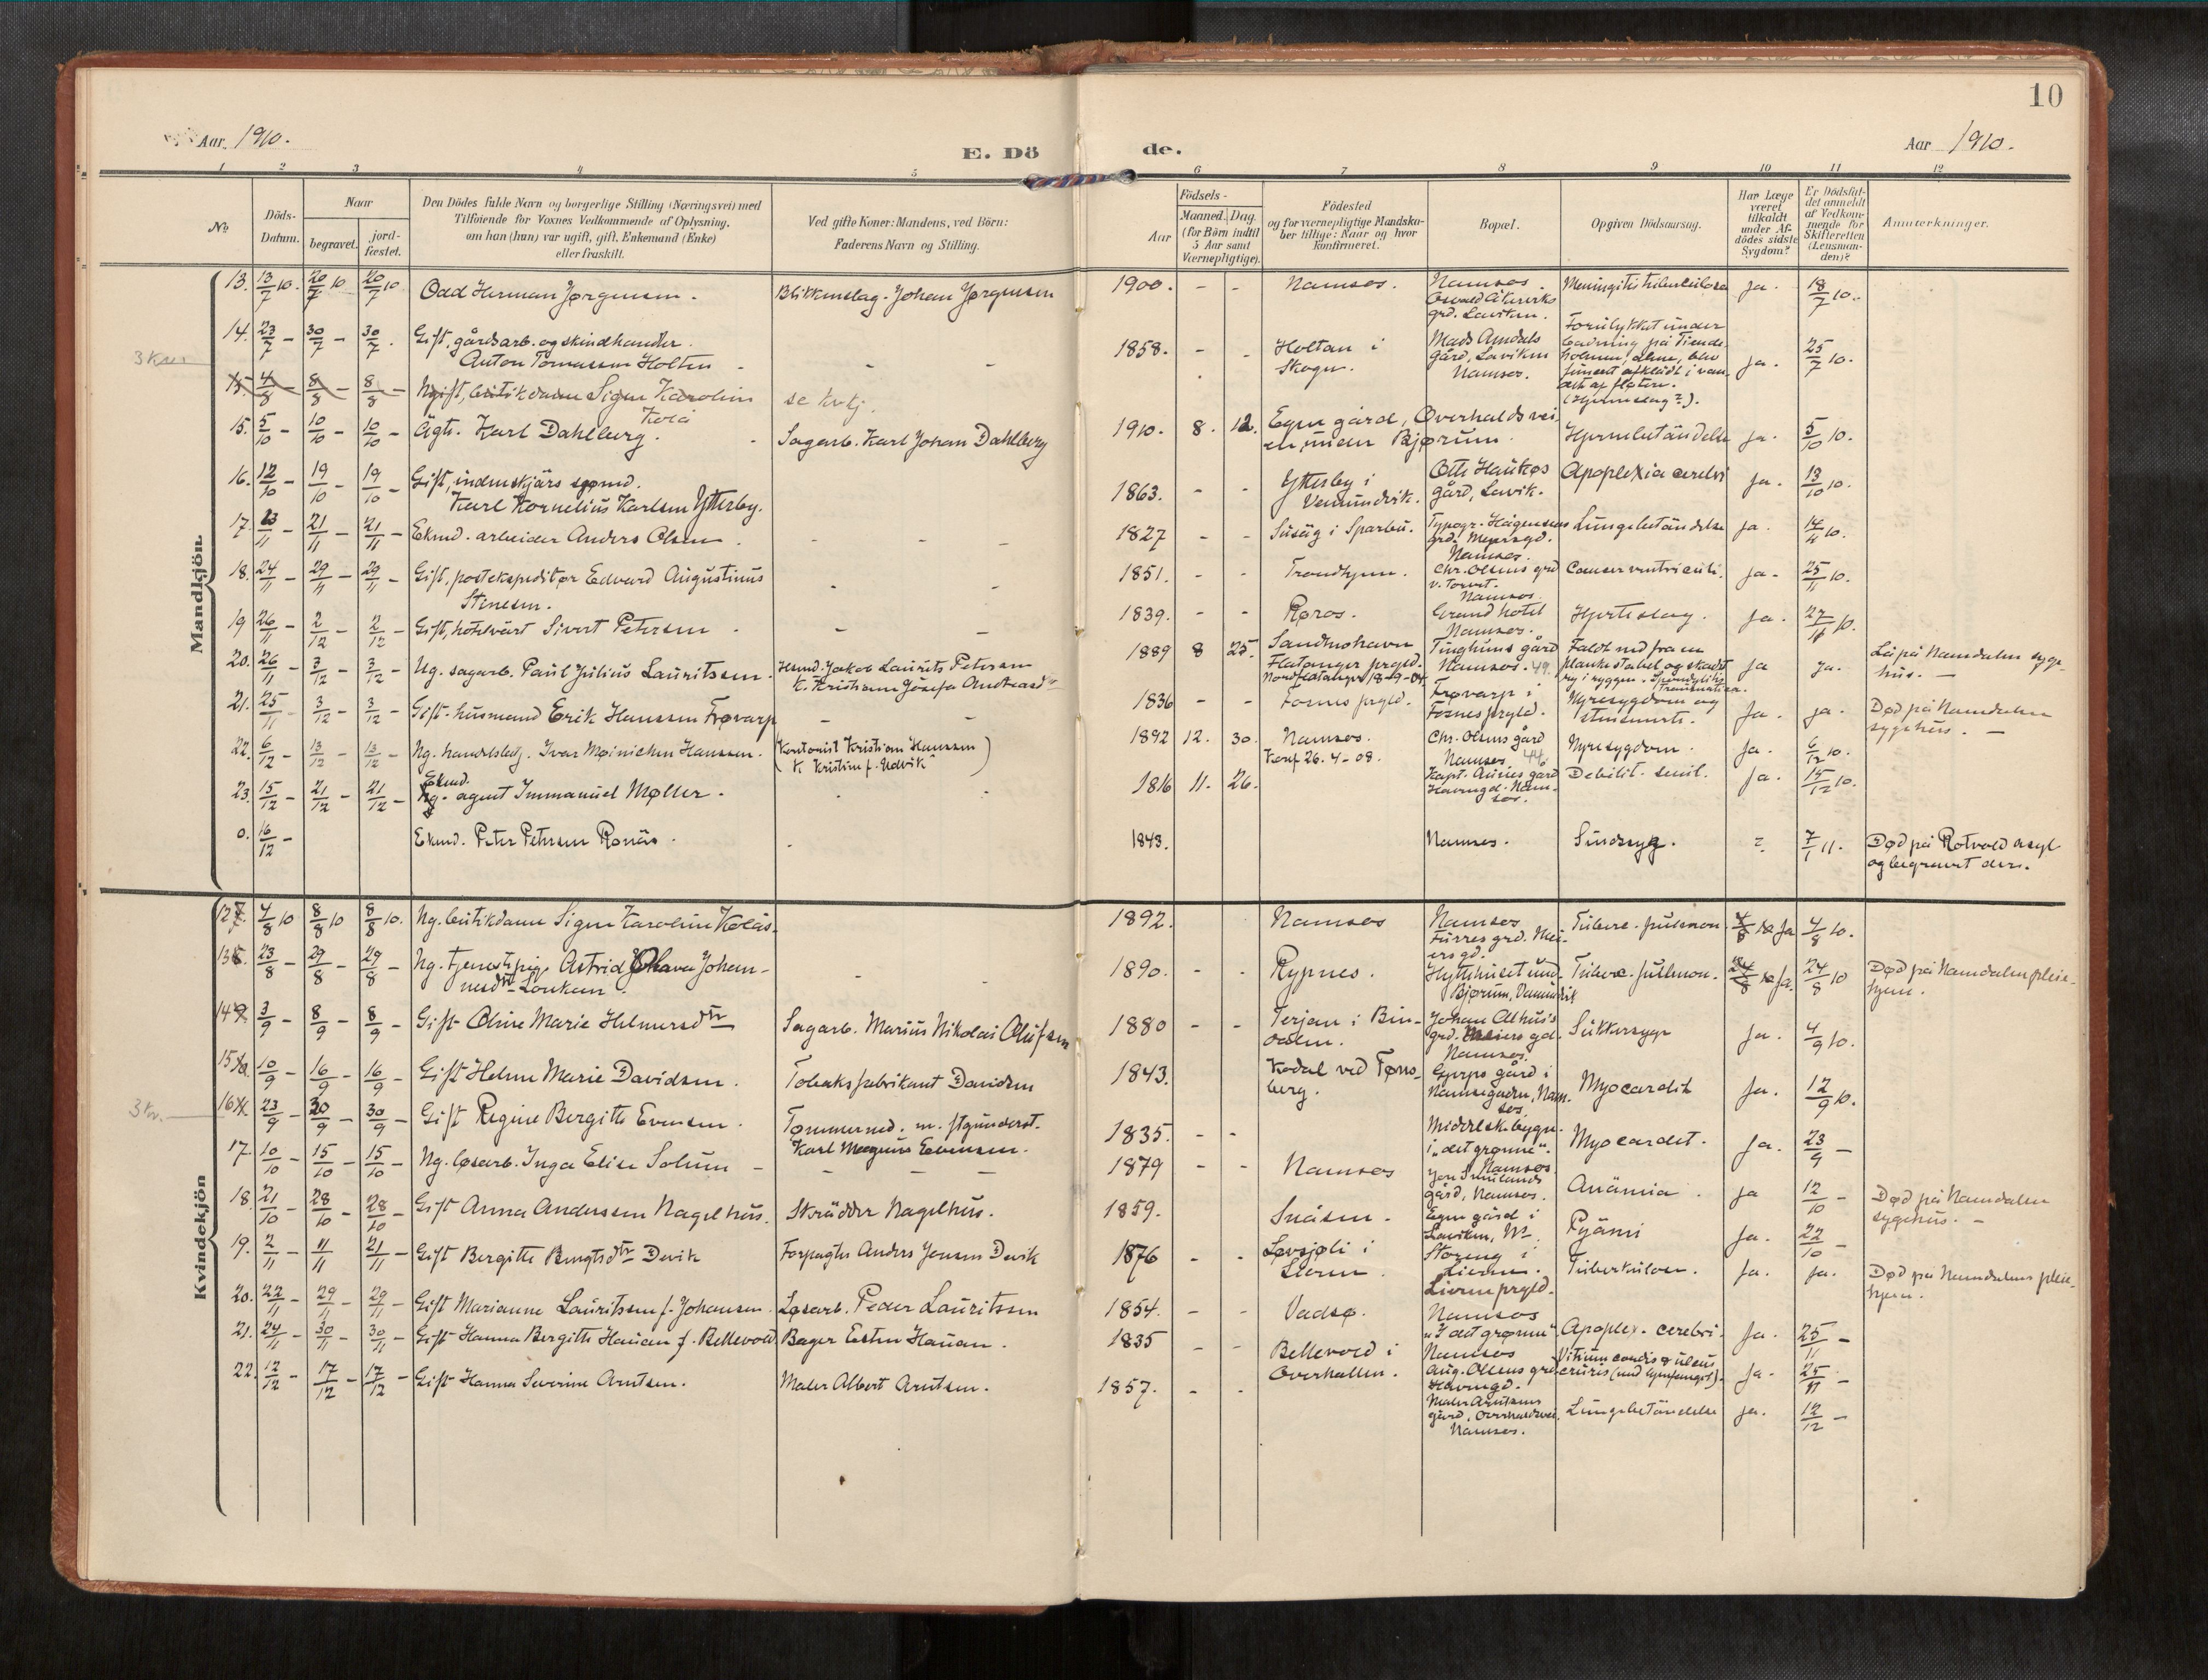 10
Aar 1910.
E. Dö de.
Aar 1910.
1 2 3 4 5 6 7 8 9 10 11 12
No.
Döds-Datum.
Naar
begravet.
jord-fæstet.
Den Dödes fulde Navn og borgerlige Stilling (Næringsvei) med
Tilföiende for Voxnes Vedkommende af Oplysning,
om han (hun) var ugift, gift, Enkemand (Enke)
eller fraskilt.
Ved gifte Koner: Mandens, ved Börn:
Faderens Navn og Stilling.
Födsels-
Aar
Maaned. Dag.
(for Börn indtil
5 Aar samt
Værnepligtige).
Födested
og for værnepligtige Mandska-
ber tillige: Naar og hvor
konfirmeret.
Bopæl.
Opgiven Dödsaarsag.
Har Læge
været
tilkaldt
under Af-
dödes sidste
Sygdom?
Er Dödsfal-
det anmeldt
af Vedkom-
mende for
Skifteretten
(Lensman-
den)?
Anmærkninger.
Mandkjön
13. 13/7 10. 20/7 10 20/7 10 Odd Herman Jørgensen. Blikkenslag. Johan Jørgensen 1900. - - Namsos. Namsos. grd. Laviken. Meningitis tuberculosa ja. 18/7 10.
14. 23/7 - 30/7 - 30/7. Gift, gårdsarb. og skindhandler.
Anton Tomassen Holten - - 1858. - - Holtan i Skogn. Mads Amdals gård, Laviken Namsos. Forulykket under badning på Tiendeholmen, alene, blev funnet afklædt i vandet af flåten. (Hjerneslag?). ja. 25/7 10.
15. 4/8 - 8/8 - 8/8 - Ugift, butikdame Signe Karolin Kolå se kvkj.
15. 5/10 - 10/10 - 10/10 - Ägte. Karl Dahlberg. Sagarb. Karl Johan Dahlberg 1910. 8. 12. Egen gård, Overhaldsveien, under Bjørum. Hjernebetändelse ja. 5/10 10.
16. 12/10 - 19/10 - 19/10 - Gift, indenskjärs sømd.
Karl Kornelius Karlsen Ytterby. 1863. - - Ytterby i Vemundvik. Otto Haukøs gård, Lavik. Apoplexia cerebri ja. 13/10 10.
17. 13/11 - 21/11 - 21/11 - Ekmd. arbeider Anders Olsen. - - 1827 - - Susäg i Sparbu. Typogr. Haigensens grd. Namsos. Lungebetändelse ja. 14/11 10.
18. 24/11 - 29/11 - 29/11 - Gift, postekspeditør Edvard Augustinus
Stenesen. - - 1851. - - Trondhjem. Chr. Olsens grd v. Torvet. Namsos. Cancer ventriculi. ja. 25/11 10.
19 26/11 - 2/12 - 2/12 - Gift, hotelvärt Sivert Petersen - - 1839. - - Røros. Grand hotel Namsos. Hjerteslag. ja. 27/11 10.
20. 26/11 - 3/12 - 3/12 - Ug. sagarb. Paul Julius Lauritssen. Husmd. Jakob Laurits Petersen
K. Kristianne Josefa Andreasdtr 1889 8 25. Sandmohavn Flatanger prgld. Nordflatanger 18-9-04. Tinghuus gård Namsos. 49. Faldt ned fra en plankestabel og skadet sig i ryggen. Spondylitis Traumatica. ja ja. Lå på Namdalen sygehus. -
21. 25/11 - 3/12 - 3/12 - Gift. husmand Erik Hanssen Frøvarp - - 1836 - - Fosnes prgld. Frøvarp i Fosnes prgld. Nyresygdom og stensmerte. ja. ja. Død på Namdalen sygehus. -
22. 6/12 - 13/12 - 13/12 - Ug. handelsbetj. Ivar Møinichen Hanssen. (Kontorist Kristian Hanssen
K. Kristine f. Udvik) 1892 12. 30. Namsos. Konf 26. 4 - 08. Chr. Olsens gård Namsos. 44. Nyresygdom. ja. 6/12 10.
23. 15/12 - 21/12 - 21/12 - Ekmd. Ug. agent Immanuel Møller. - - 1816 11. 26. Kapt. gård Havnegd. Namsos. Debilit. senil. ja. 15/12 10.
0. 16/12 - Ekmd. Peter Petersen Ronäs. - 1843. Namsos. Sindssyg. ? 7/1 11. Død på Rotvold asyl og begravet der.
Kvindekjön
12. 4/8 10 8/8 10 8/8 10. Ug. butikdame Signe Karoline Kolås. 1892. Namsos Namsos Furres grd. Tuberc. pulmon. ja 4/8 10.
13. 23/8 - 29/8 - 29/8 - Ug. tjenestepige Astrid Johava Johan-
nesdtr Lonkem. - - 1890. - - Rypnes. Hyttehuset und. Bjørum, Vemundvik Tuberc. pulmon. ja. 24/8 10 Død på Namdalen pleiehjem.
14. 3/9 - 8/9 - 8/9 - Gift Oline Marie Helmersdtr Sagarb. Marius Nikolai Olufsen 1880 - - Terjan i Bindalen. Johan Alhus's grd. Namsos. Sukkersyge ja. 4/9 10.
15. 10/9 - 16/9 - 16/9 - Gift Helene Marie Davidsen. Tobaksfabrikant Davidsen 1843. Kodal ved Tønsberg. gård i Namsos. Myocardit ja. 12/9 10.
3 kr.
16. 23/9 - 30/9 - 30/9 - Gift Regine Bergitte Evensen. Tømmermd. m. fl.
Karl Magnus Evensen. 1835. - - Middelsk. bygn. i „det grønne“. Namsos. Myocardit. ja. 23/9 -
17. 10/10 - 15/10 - 15/10 - Ug. løsarb. Inga Elise Solum - - - 1879 - - Namsos gård, Namsos. Anämia. ja 12/10 - Død på Namdalen sygehus. -
18. 21/10 - 28/10 - 28/10 - Gift Anna Anderssen Nagelhus. Skrädder Nagelhus. 1859. Snåsen. Egen gård i Laviken, Ns. Pyämi ja. 22/10 -
19. 2/11 - 11/11 21/11 - Gift Bergitte Bengtsdtr Devik Forpagter Anders Jensen Devik 1876 - - Løvsjøli i Lierne. Storeng i Lierne. Lierne prgld. Tuberkulose. ja. ja. Død på Namdalens pleiehjem.
20. 22/11 - 29/11 - 29/11 - Gift Marianne Lauritssen f. Johansen. Løsarb. Peder Lauritssen 1854. - - Vadsø. Namsos „I det grønne“. Apoplex. cerebri. ja. 25/11 -
21. 24/11 - 30/11 - 30/11 - Gift Hanna Bergitte Hauan f. Bellevold Bager Esten Hauan. 1835 - - Bellevold i Overhallen. Namsos Aug. Olsens grd Havnegd. Vitium cordis & ulcus cruris (med lymfangit). ja. 25/11 -
22. 12/12 - 17/12 - 17/12 - Gift Hanna Severine Arntsen. Maler Albert Arntsen. 1857. - - Maler Arntsens gård, Overhaldsvei. Namsos. Lungebetändelse ja. 12/12 -